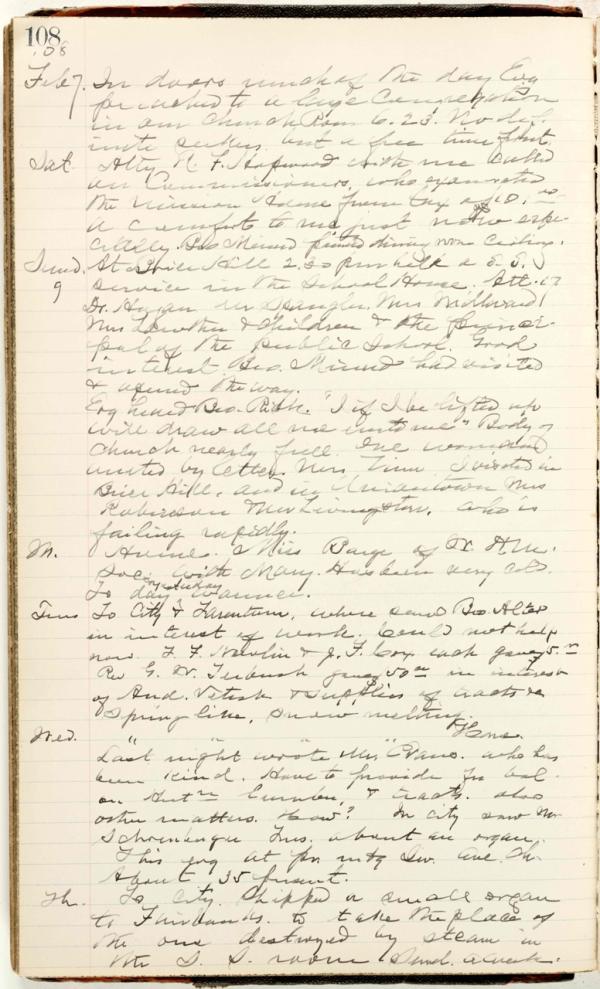 108
108
Feb 7. In doors much of the day Evg
preached to a large Congregation
in our Church Rom 6.23. No def-
inite seekers but a free time first.
Sat. Atty R. F. Hopwood with me called
on Commissioners, who exonerated
the Mission Home from tax
a comfort to me just now espe-
cially. Bro Minerd painted dining room Ceiling.
Sund. At Brier Hill 2.30 P.m held a S. S.
9 service in the School House. Att. 17
Dr. Hagan Mr Spangler, Mrs Millward
Mrs Lowther & Children & the princi-
pal of the Public School. Good
interest. Bro. Minerd had visited
& opened the way.
Evg heard Bro. "I if I be lifted up
will draw all men unto me" Body of
Church nearly full. One woman
united by letter. Mrs I visited in
Brier Hill, and in Uniontown Mrs
Roberson & Mrs Livingston, who is
failing rapidly.
M. Home. Miss Barge of W. H. M.
Soc. with Mary. Has been very cold.
To day warmer.
Tues To City & Tarentum, where saw Bro Alter
in interest of work. Could not help
now. F. F. Nevlin & J. F. Cox each gave 5.
Rev G. W. gave 50 in interest
of And. & supplies of tracts &c
Spring like, snow melting.
Wed. Home.
Last night wrote Mrs Evans. who has
been kind. Have to provide for bal.
on lumber, & tracts. also
other matters. How? In city saw Mr
about an organ.
This evg at pr mtg Liv. Ave. Ch.
About 35 present.
Th. To City. Shipped a small organ
to Fairbanks. to take the place of
the one destroyed by steam in
the S. S. room Sund. a week.